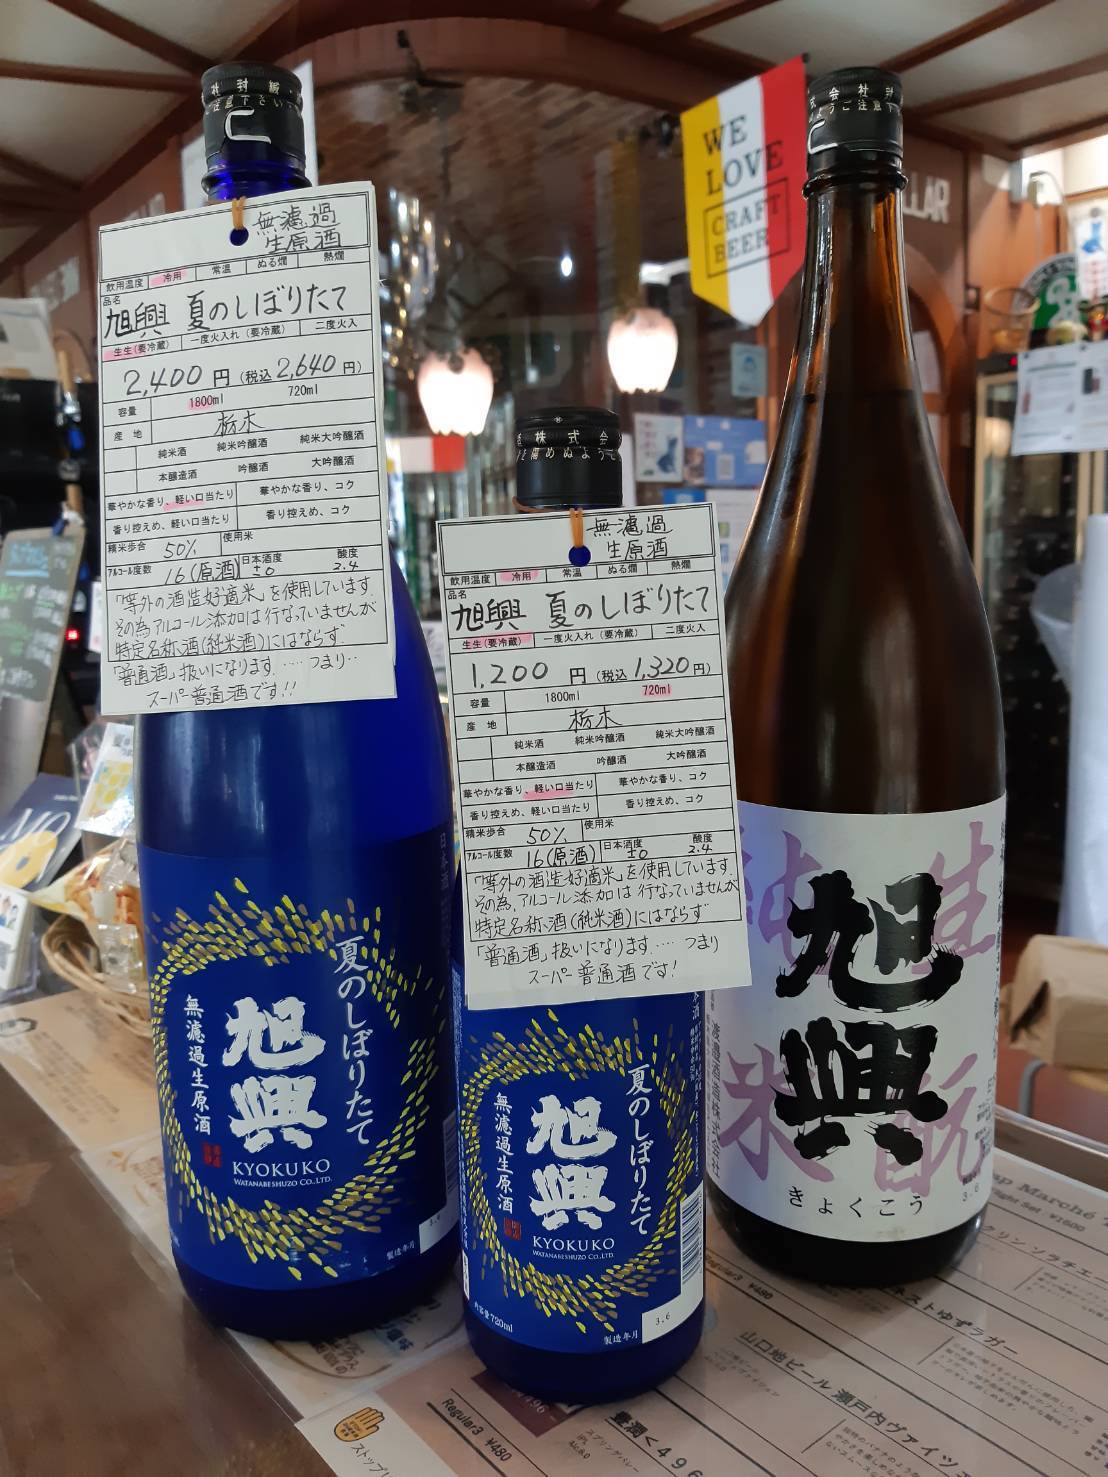 無濾過
生原酒
飲用温度 冷用 常温 ぬる燗 熱燗
品名
旭興 夏のしぼりたて
生生(要冷蔵) 一度火入れ(要冷蔵) 二度火入
2,400円(税込2,640円)
容量 1800ml 720ml
産地 栃木
純米酒 純米吟醸酒 純米大吟醸酒
本醸造酒 吟醸酒 大吟醸酒
華やかな香り、軽い口当たり 華やかな香り、コク
香り控えめ、軽い口当たり 香り控えめ、コク
精米歩合 50% 使用米
アルコール度数 16(原酒) 日本酒度 ±0 酸度 2.4
「等外の酒造好適米」を使用しています。
その為アルコール添加は行なっていませんが
特定名称酒(純米酒)にはならず
「普通酒」扱いになります‥‥つまり‥
スーパー普通酒です!!
無濾過
生原酒
飲用温度 冷用 常温 ぬる燗 熱燗
品名
旭興 夏のしぼりたて
生生(要冷蔵) 一度火入れ(要冷蔵) 二度火入
1,200円(税込1,320円)
容量 1800ml 720ml
産地 栃木
純米酒 純米吟醸酒 純米大吟醸酒
本醸造酒 吟醸酒 大吟醸酒
華やかな香り、軽い口当たり 華やかな香り、コク
香り控えめ、軽い口当たり 香り控えめ、コク
精米歩合 50% 使用米
アルコール度数 16(原酒) 日本酒度 ±0 酸度 2.4
「等外の酒造好適米」を使用しています。
その為、アルコール添加は行なっていませんが
特定名称酒(純米酒)にはならず
「普通酒」扱いになります‥‥つまり
スーパー普通酒です!
WE
LOVE
CRAFT
BEER
LLAR
夏のしぼりたて
旭興
無濾過生原酒
KYOKUKO
WATANABESHUZO CO.,LTD.
製造年月 3.6
日本酒
夏のしぼりたて
旭興
無濾過生原酒
KYOKUKO
WATANABESHUZO CO.,LTD.
内容量720ml
製造年月 3.6
純米
生酛
旭興
きょくこう
渡邉酒造株式会社
3.6
ap Marché
リンソラチエー
ネストゆずラガー
山口地ビール 瀬戸内ヴァイツ
豊潤<496
スプリングバレー
IPL
Alc.6.0
Regular3 ¥480